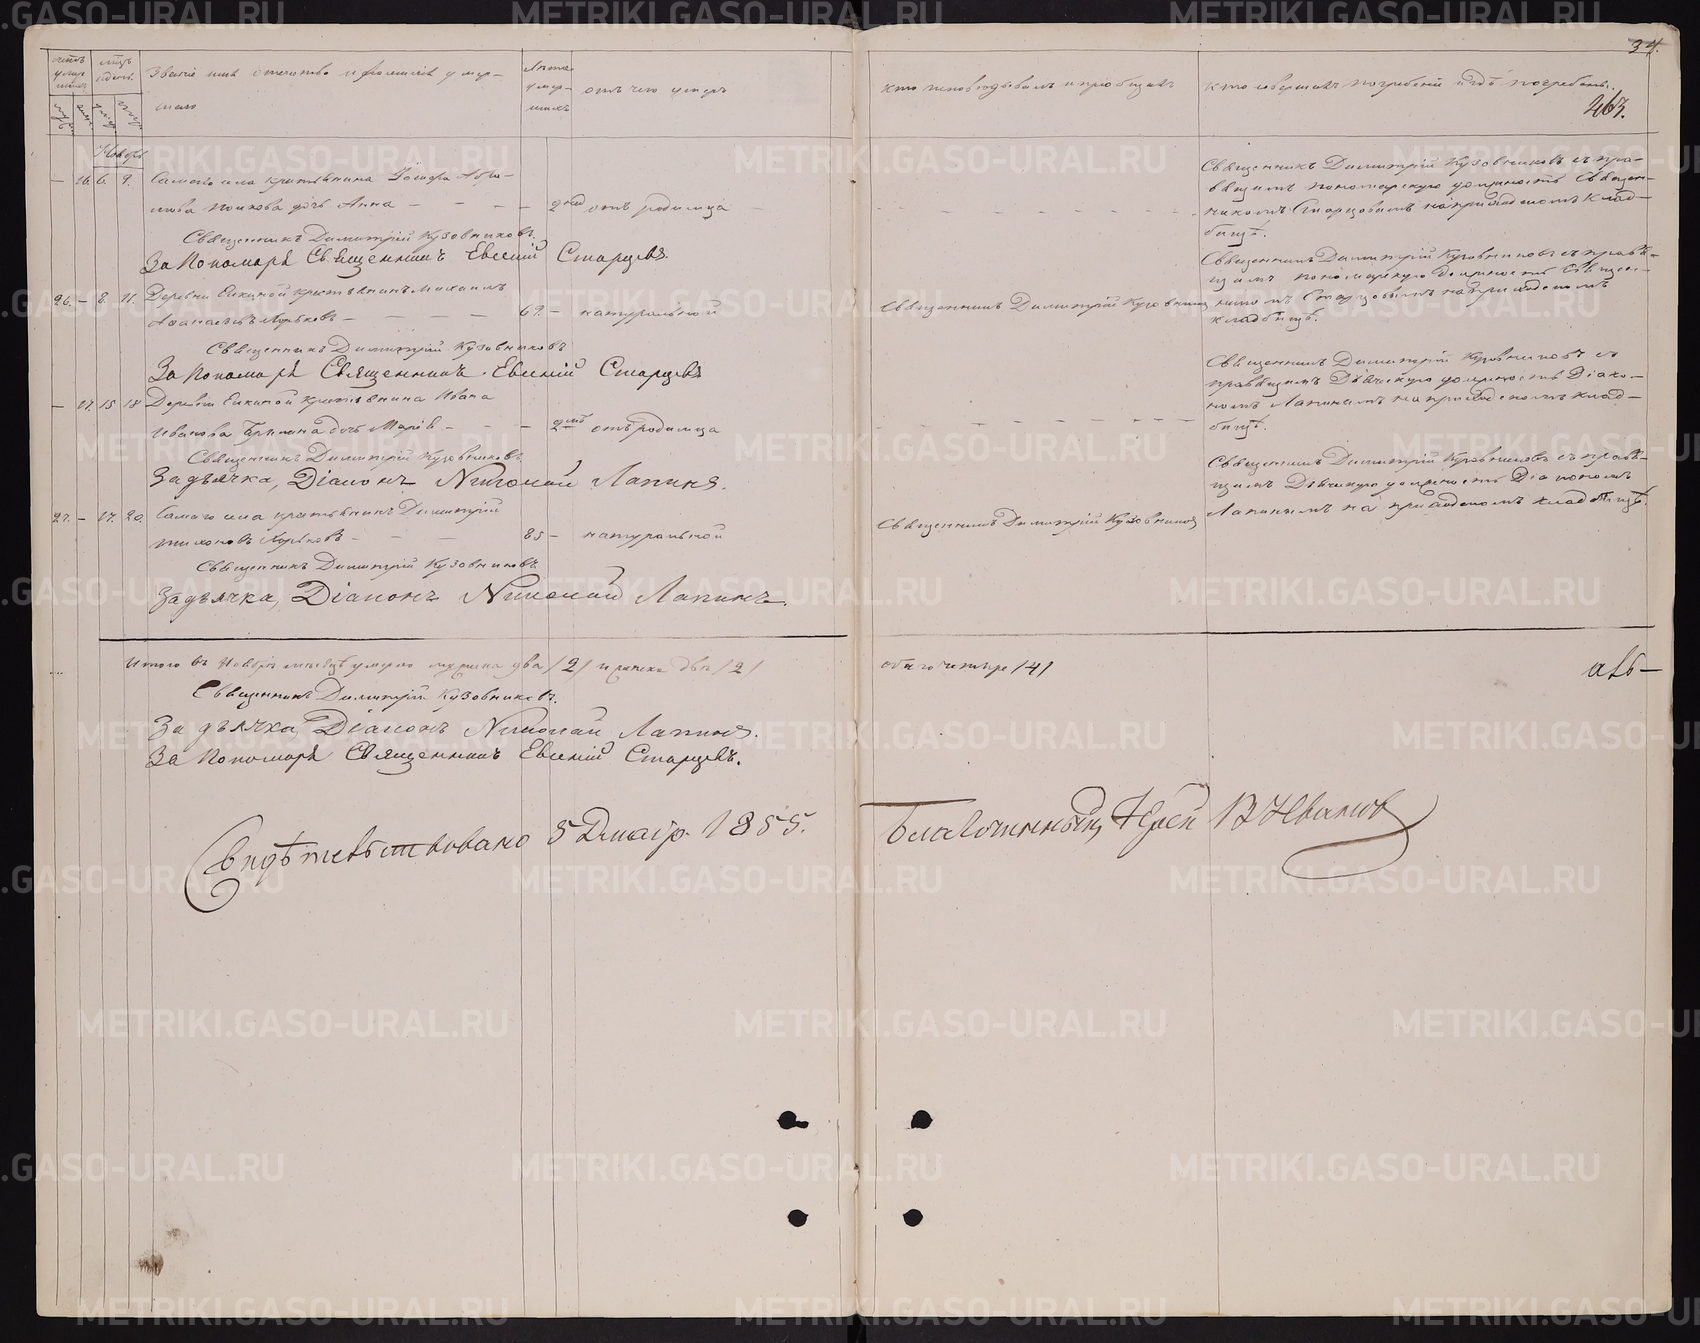 34.
263.
Званіе имя отечество и фамилія умер-
шаго
Лѣта
умер-
шихъ
отъ чего умеръ
кто исповѣдывалъ и пріобщалъ
кто совершалъ погребеніе и гдѣ погребены.
Ноябрь
— 16. 6. 9. Самаго села крестьянина
дочь Анна — — — — 2 нед. отъ родимца —
Священникъ Димитрій Кузовниковъ съ пра-
вящимъ пономарскую должность Священ-
никомъ Старцовымъ на приходскомъ клад-
бищѣ.
Священникъ Димитрій Кузовниковъ.
За Пономаря Священникъ Евгеній Старцевъ
26. — 8. 11. Деревни крестьянинъ Михаилъ
— — — — 69. — натуральной
Священникъ Димитрій Кузовниковъ
Священникъ Димитрій Кузовниковъ съ правя-
щимъ пономарскую должность Священ-
никомъ Старцовымъ на приходскомъ
кладбищѣ.
Священникъ Димитрій Кузовниковъ
За Пономаря Священникъ Евгеній Старцевъ
— 17. 15 18 Деревни крестьянина Ивана
Иванова дочь Марія — — — 2 отъ родимца
Священникъ Димитрій Кузовниковъ съ
правящимъ Дьяческую должность Діако-
номъ Лапинымъ на приходскомъ клад-
бищѣ.
Священникъ Димитрій Кузовниковъ
За дьячка, Діаконъ Николай Лапинъ.
27. — 17. 20. Самаго села крестьянинъ Димитрій
Тихоновъ — — — 85 — натуральной
Священникъ Димитрій Кузовниковъ
Священникъ Димитрій Кузовниковъ съ правя-
щимъ Дьяческую должность Діакономъ
Лапинымъ на приходскомъ кладбищѣ.
Священникъ Димитрій Кузовниковъ
За дьячка, Діаконъ Николай Лапинъ.
Итого въ Ноябрѣ мѣсяцѣ умерло мужеска два /2/ и женска двѣ /2/
обаго четыре /4/
Священникъ Димитрій Кузовниковъ.
За дьячка, Діаконъ Николай Лапинъ.
За Пономаря Священникъ Евгеній Старцевъ.
Свидѣтельствовано 5 Декабр. 1855.
Благочинный, Іерей В Ивановъ
METRIKI.GASO-URAL.RU